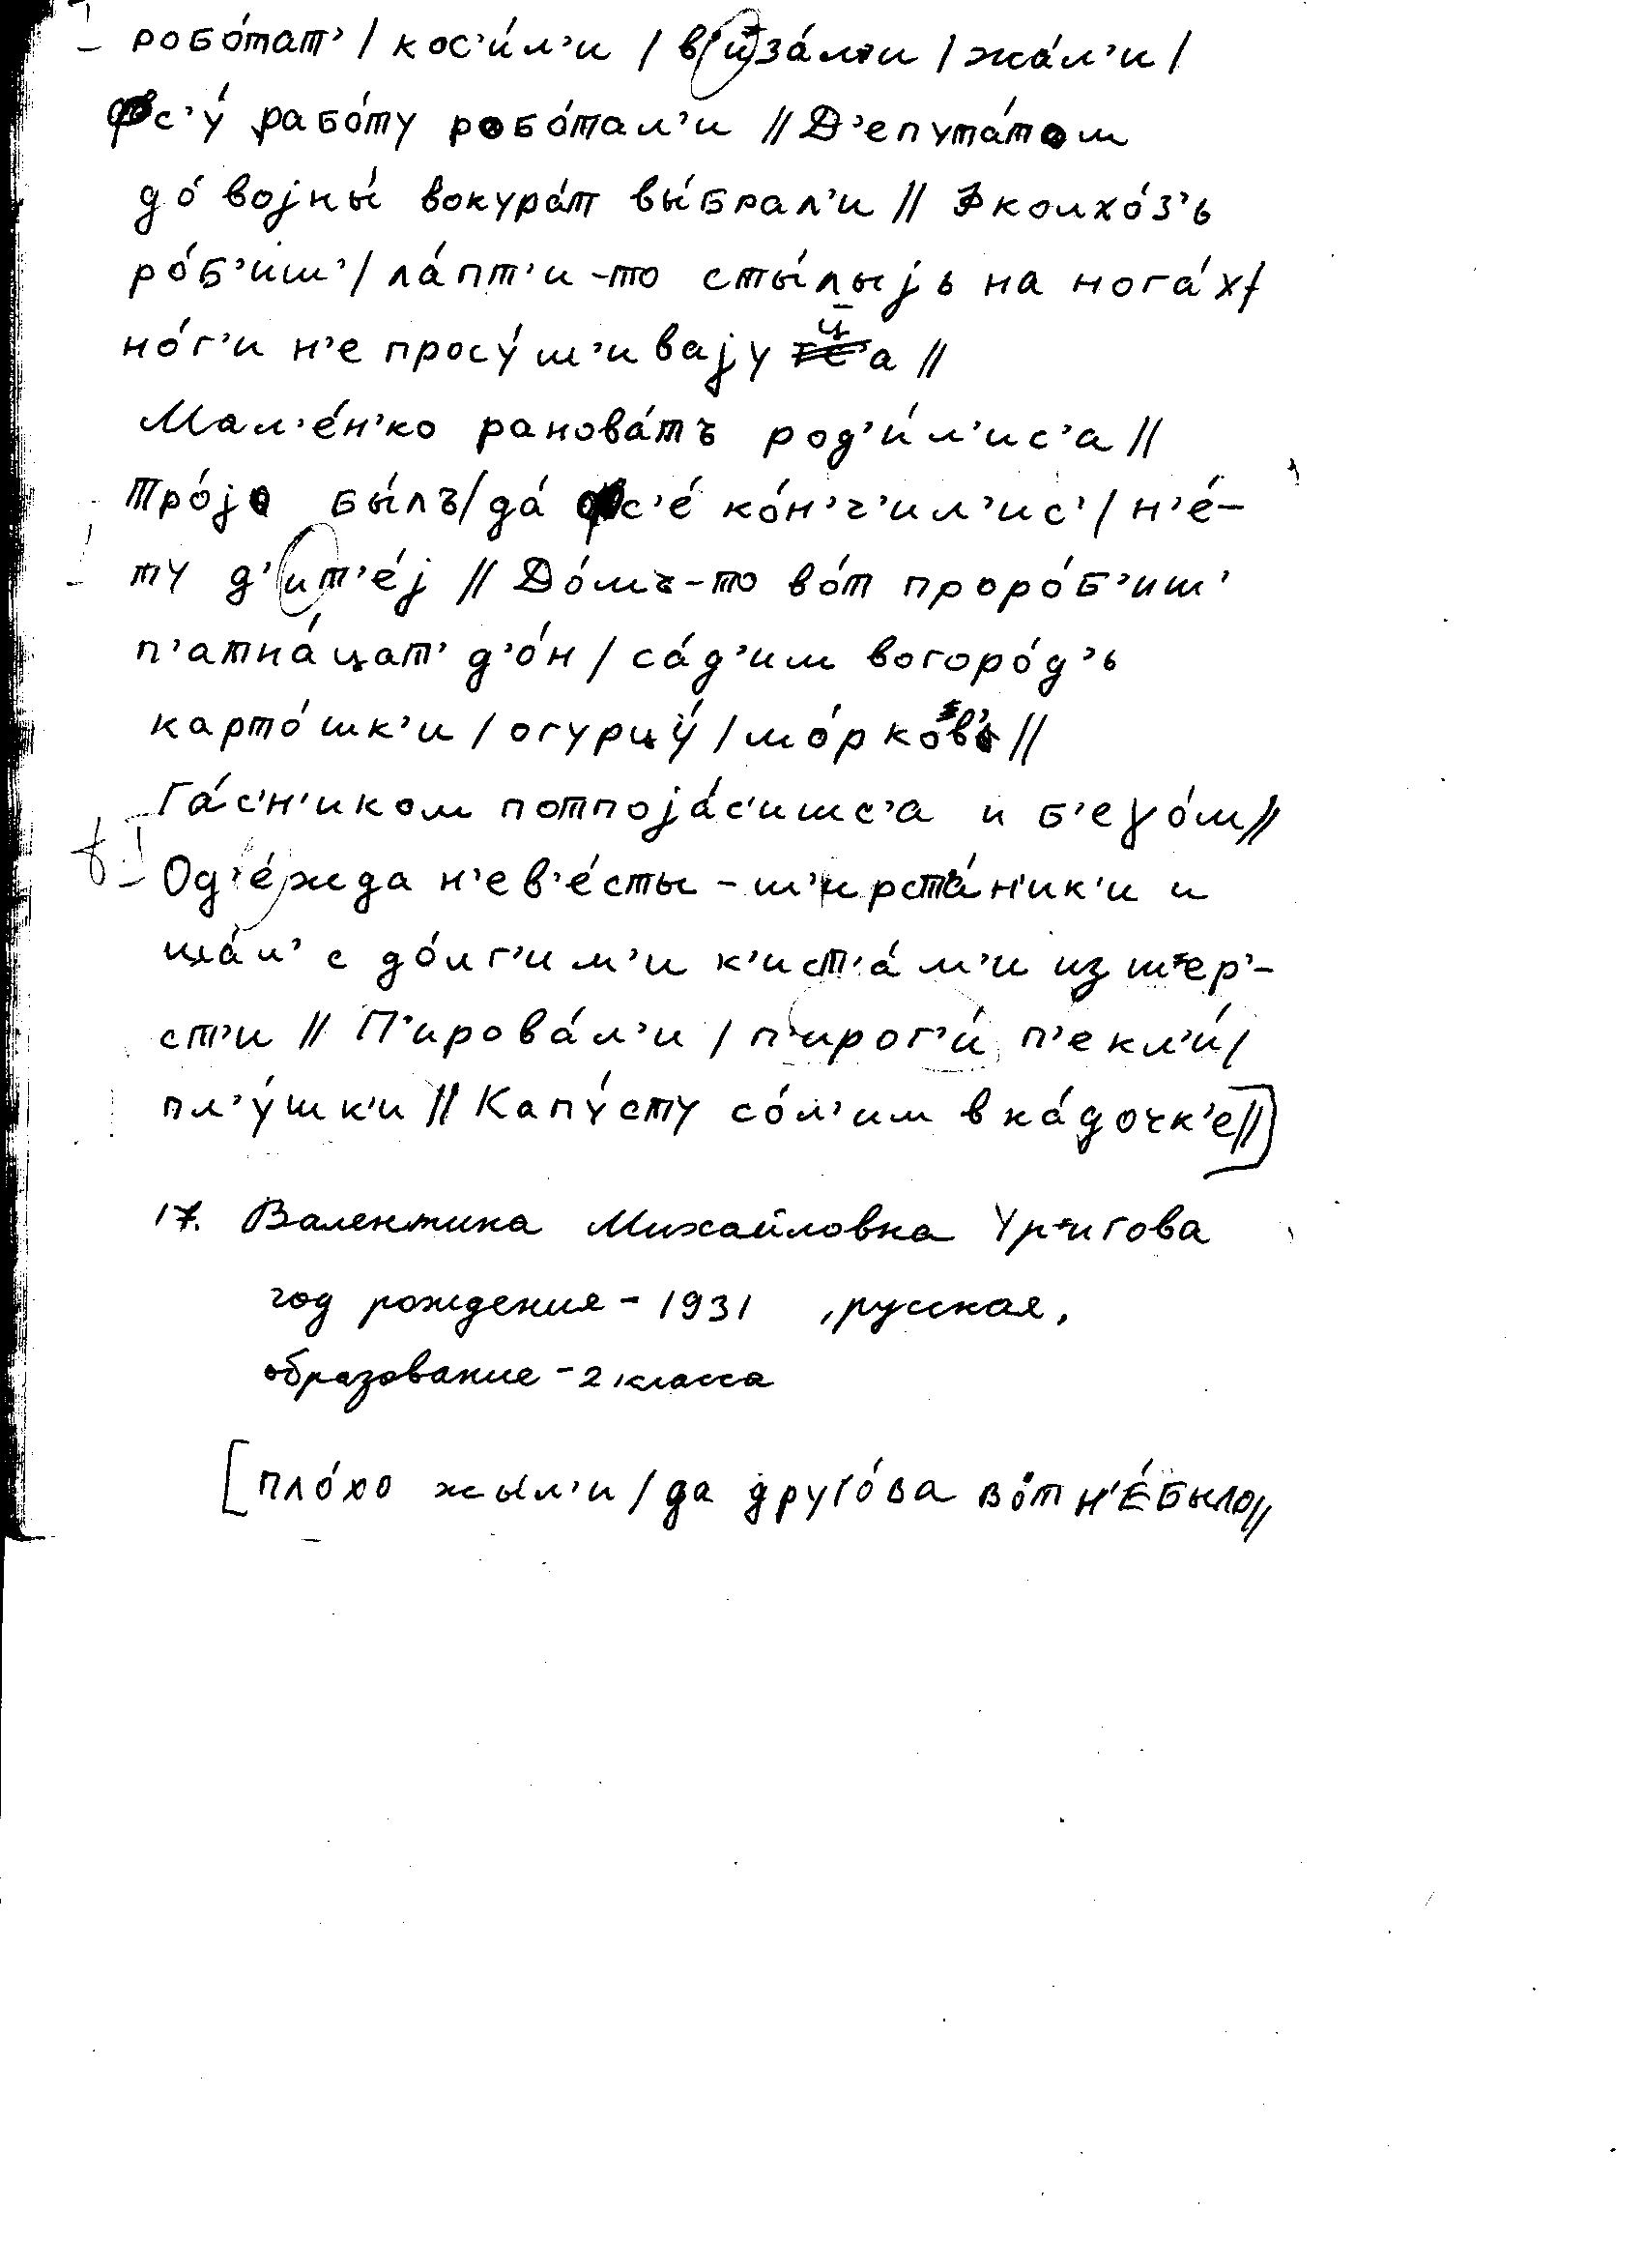 робо́тат' / кос'и́л'и / в'иза́л'и / жа́л'и /
фс'у́ рабо́ту робо́тал'и // Д'епута́том
до́ војны́ вокура́т вы́брал'и // Ф колхо́з'ь
ро́б'иш' / ла́пт'и-то сты́лыјь на нога́х /
но́г'и н'е просу́ш'ивају ца //
Мал'е́н'ко ранова́тъ род'и́л'ис'а //
тро́јо бы́лъ / да́ фс'е́ ко́н'ч'ил'ис' / н'е́-
ту д'ит'е́ј // До́мъ-то во́т проро́б'иш'
п'атна́цат' д'о́н / са́д'им вогоро́д'ь
карто́шк'и / огурцы́ / мо́рков' //
Га́с'н'иком потпоја́с'ишс'а и б'еɣо́м //
Од'е́жда н'ев'е́сты - ш'ирста́н'ик'и и
ша́л' с до́лг'им'и к'ист'а́м'и из шер'-
ст'и // П'ирова́л'и / п'ирог'и́ п'екл'и́ /
пл'у́шк'и // Капу́сту со́л'им в ка́дочк'е // ]
17. Валентина Михайловна
год рождения - 1931 , русская,
образование - 2 класса
[ пло́хо жы́л'и / да друго́ва во́т н'е́ было //